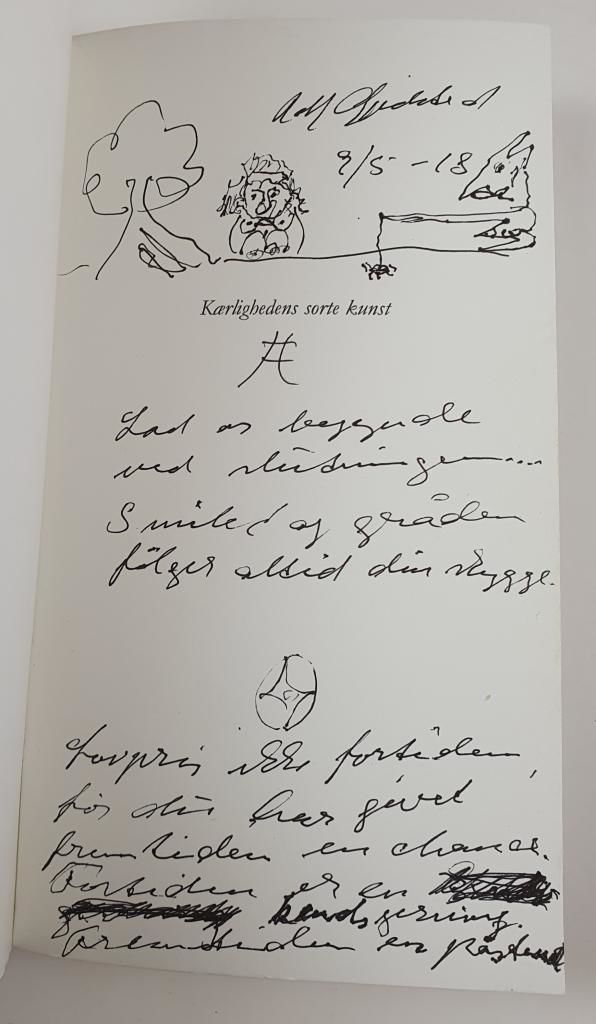 9/5 - 18
Kærlighedens sorte kunst
Lad os begynde
ved slutningen...
Smilet og gråden
følger altid din skygge.
Lovpris ikke fortiden,
før du har givet
fremtiden en chance.
Fortiden er en
kendsgerning.
Fremtiden en påstand